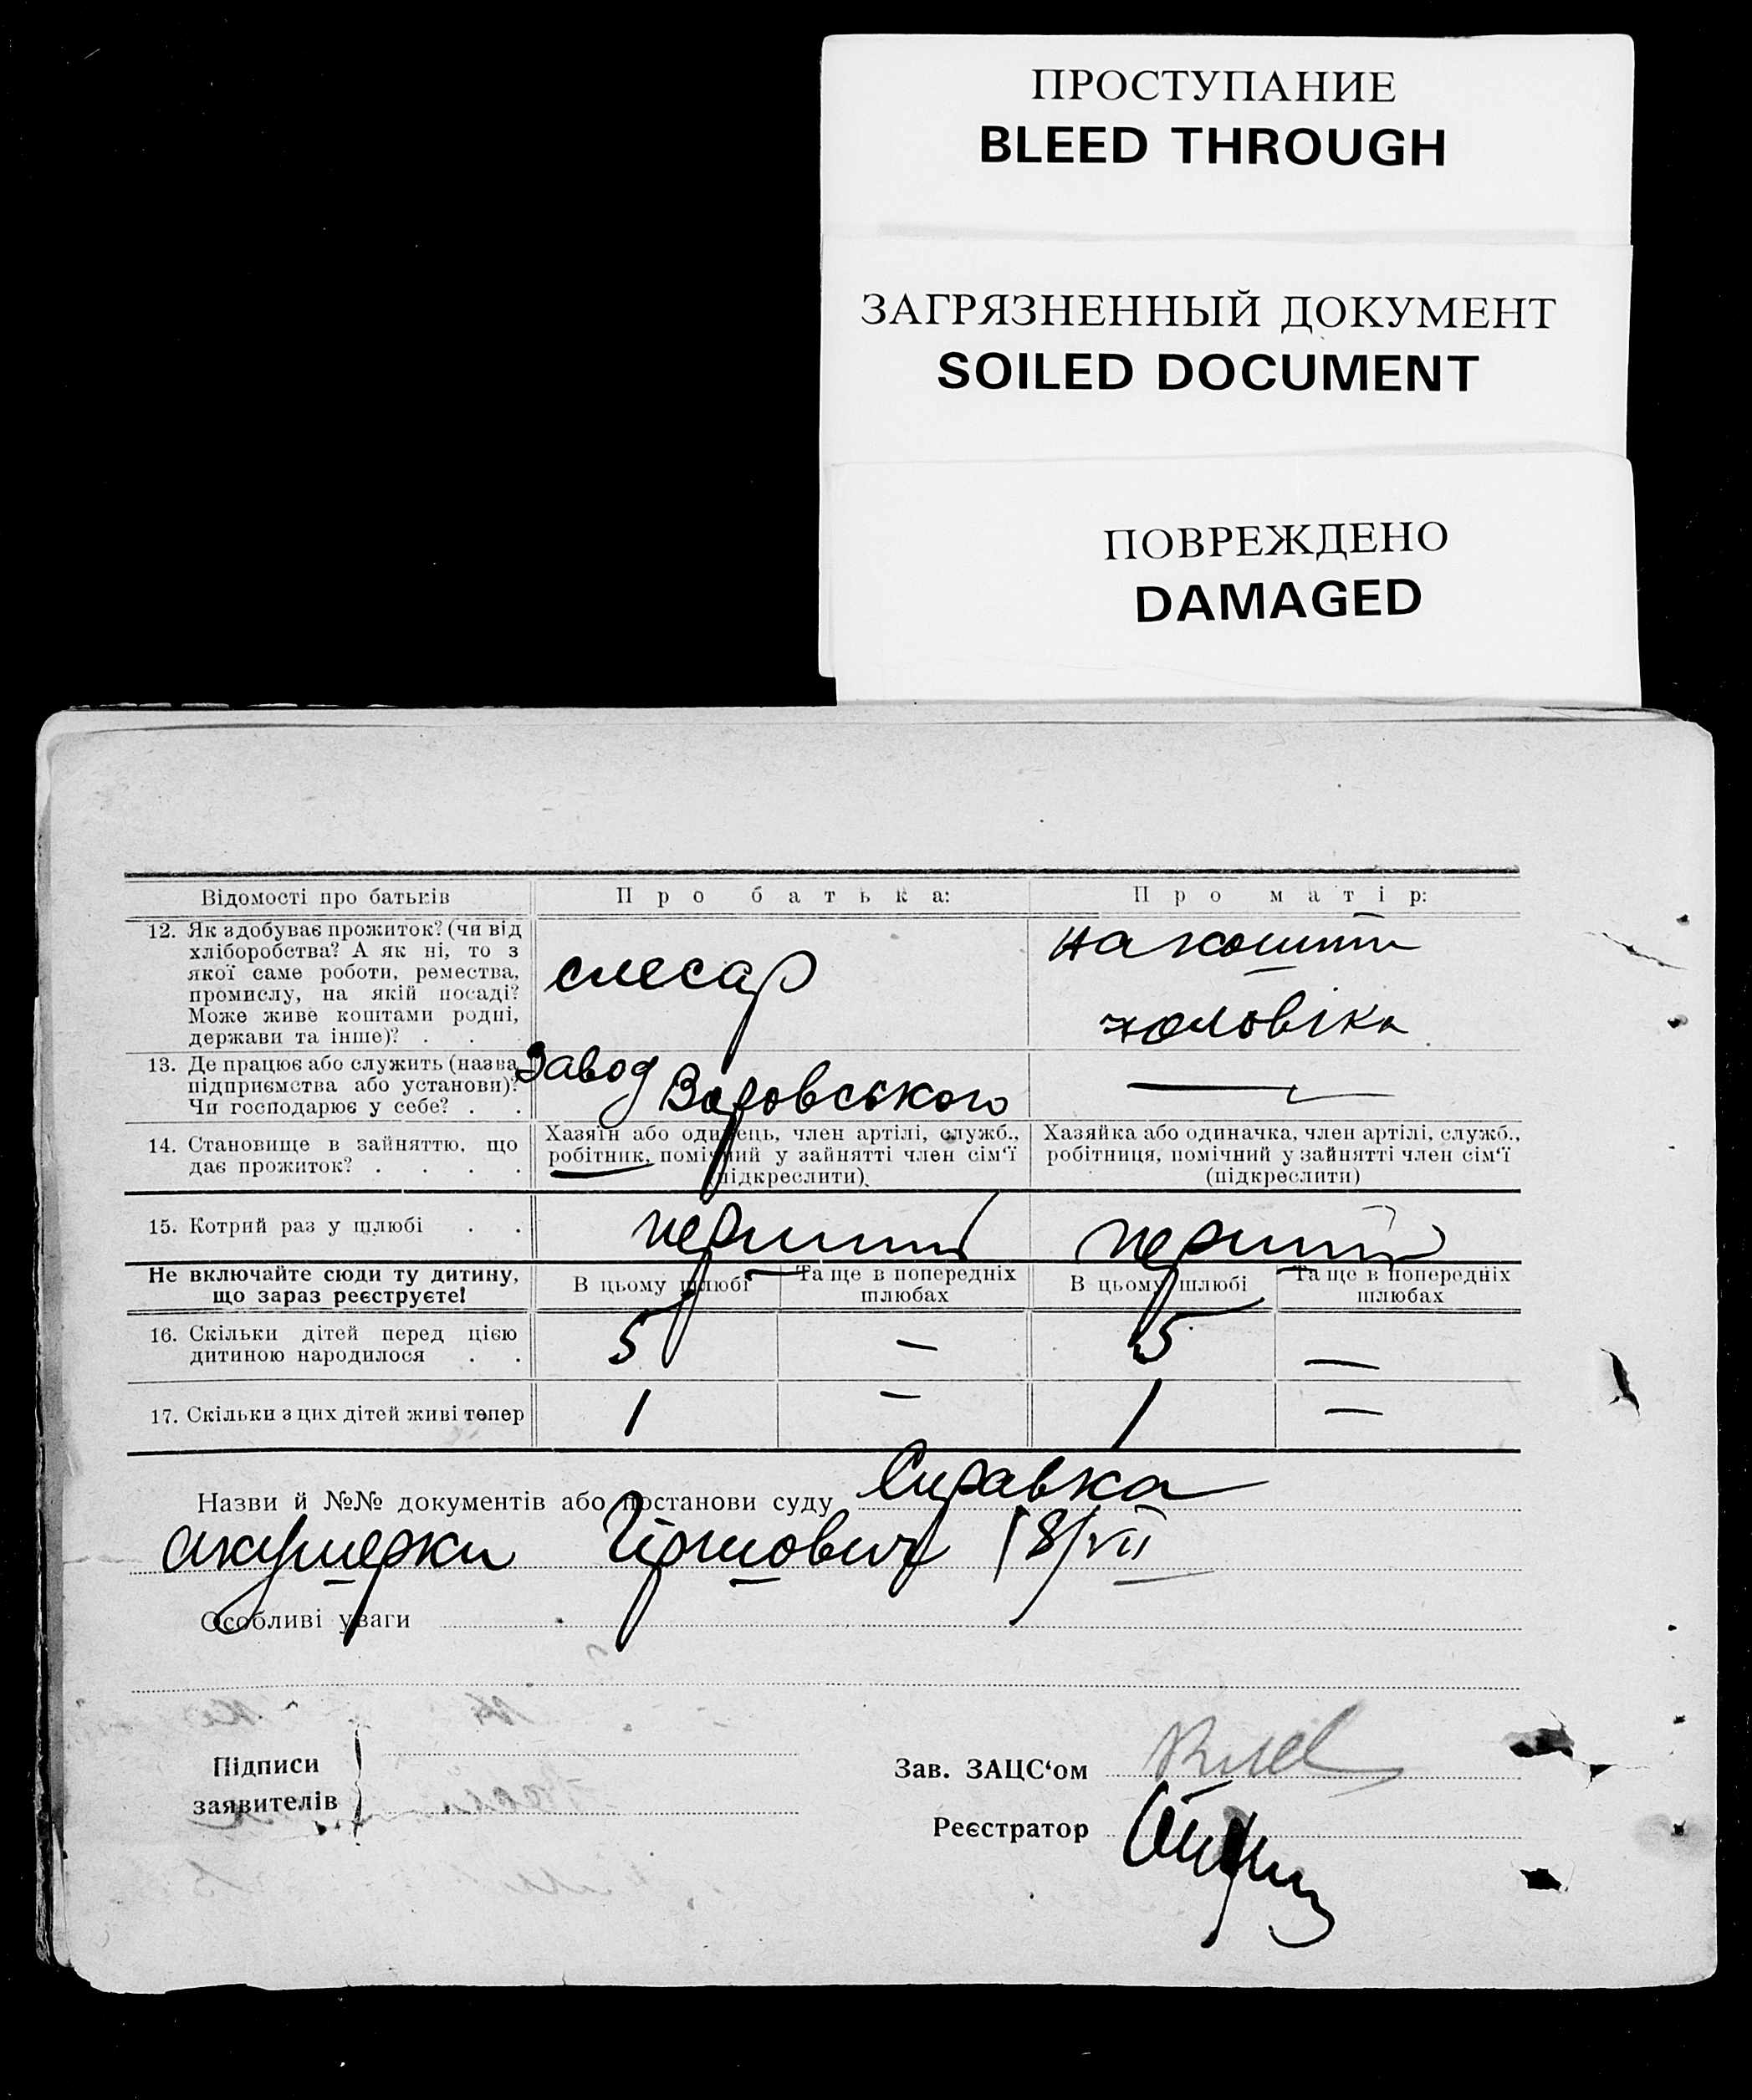 ПРОСТУПАНИЕ
BLEED THROUGH
ЗАГРЯЗНЕННЫЙ ДОКУМЕНТ
SOILED DOCUMENT
ПОВРЕЖДЕНО
DAMAGED
Відомості про батьків
Про батька:
Про матір:
12. Як здобуває прожиток? (чи від
хліборобства? А як ні, то з
якої саме роботи, ремества,
промислу, на якій посаді?
Може живе коштами родні,
держави та інше)? . .
слесар
на кошти
чоловіка
13. Де працює або служить (назва
підприємства або установи)?
Чи господарює у себе? . .
Завод
Воровського
—
14. Становище в зайняттю, що
дає прожиток? . . . .
Хазяїн або одинець, член артілі, служб.,
робітник, помічний у зайнятті член сім'ї
(підкреслити)
Хазяйка або одиначка, член артілі, служб.,
робітниця, помічний у зайнятті член сім'ї
(підкреслити)
15. Котрий раз у шлюбі . .
перший
перший
Не включайте сюди ту дитину,
що зараз реєструєте!
В цьому шлюбі
Та ще в попередніх
шлюбах
В цьому шлюбі
Та ще в попередніх
шлюбах
16. Скільки дітей перед цією
дитиною народилося . .
5
—
5
—
17. Скільки з цих дітей живі тепер
1
—
1
—
Назви й №№ документів або постанови суду Справка
акушерки Гіршович 18/VII
Особливі уваги
Підписи
заявителів
Зав. ЗАЦС'ом
Реєстратор